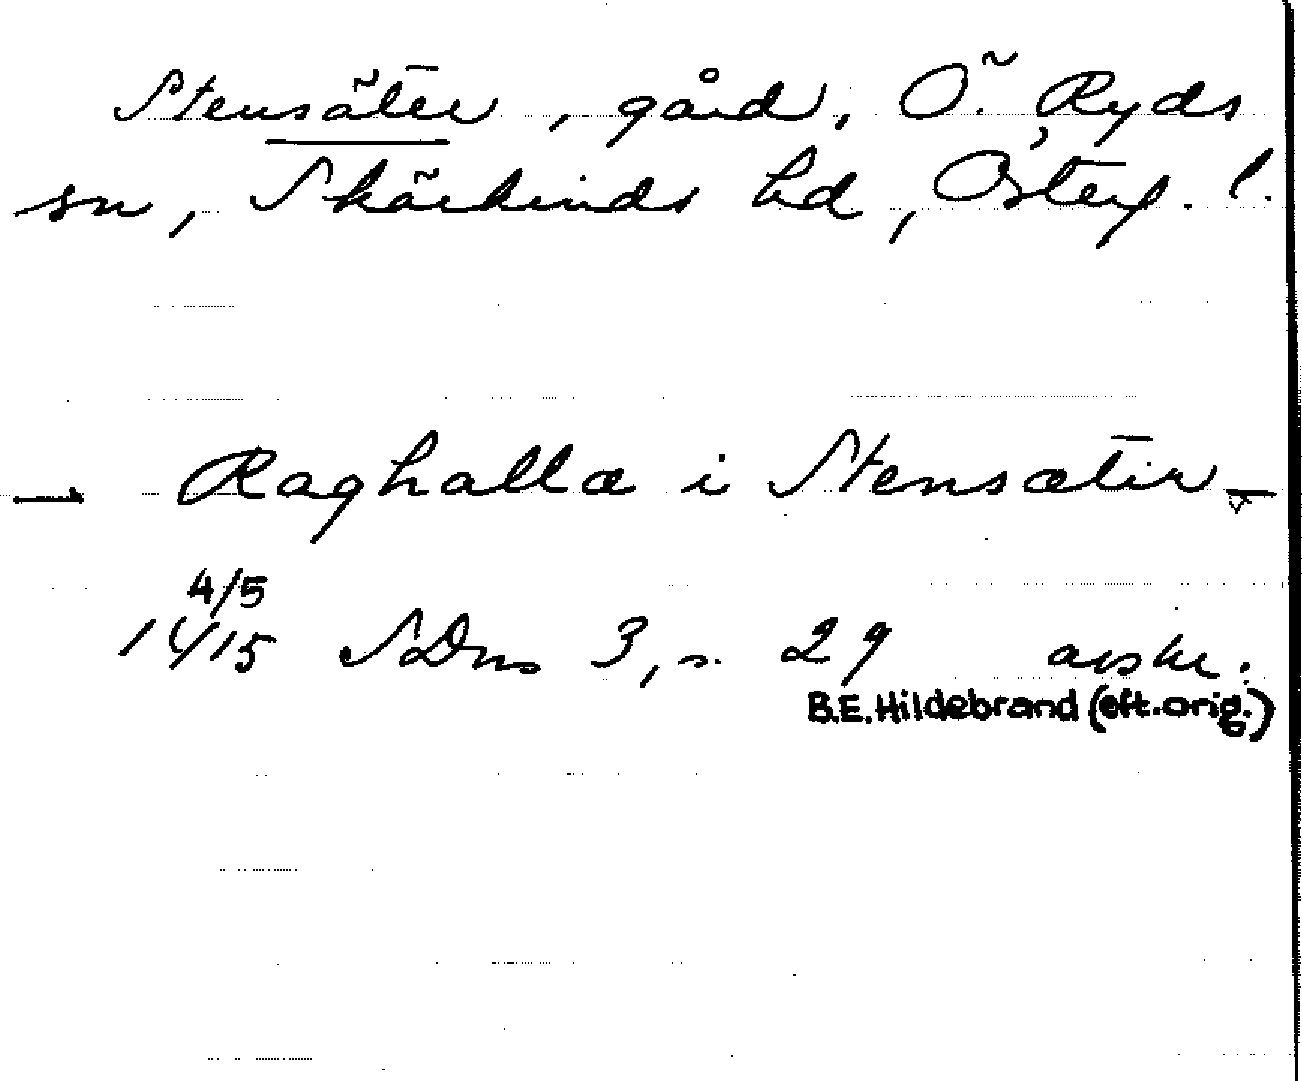 Stensäter, gård, Ö. Ryds
sn, Skärkinds hd, Österg. l.
— Raghalla i Stensætir —
4/5
1415 SDns 3, s. 29 avskr.
B.E. Hildebrand (eft. orig.)